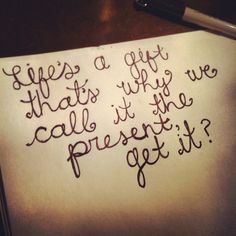 Life's a gift
that's why we
call it the
present,
get it?